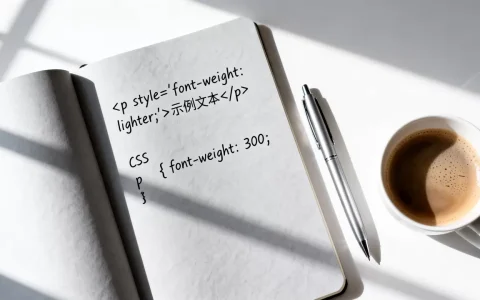 <p style='font-weight:
lighter;'>示例文本</p>
CSS
p { font-weight: 300;
}